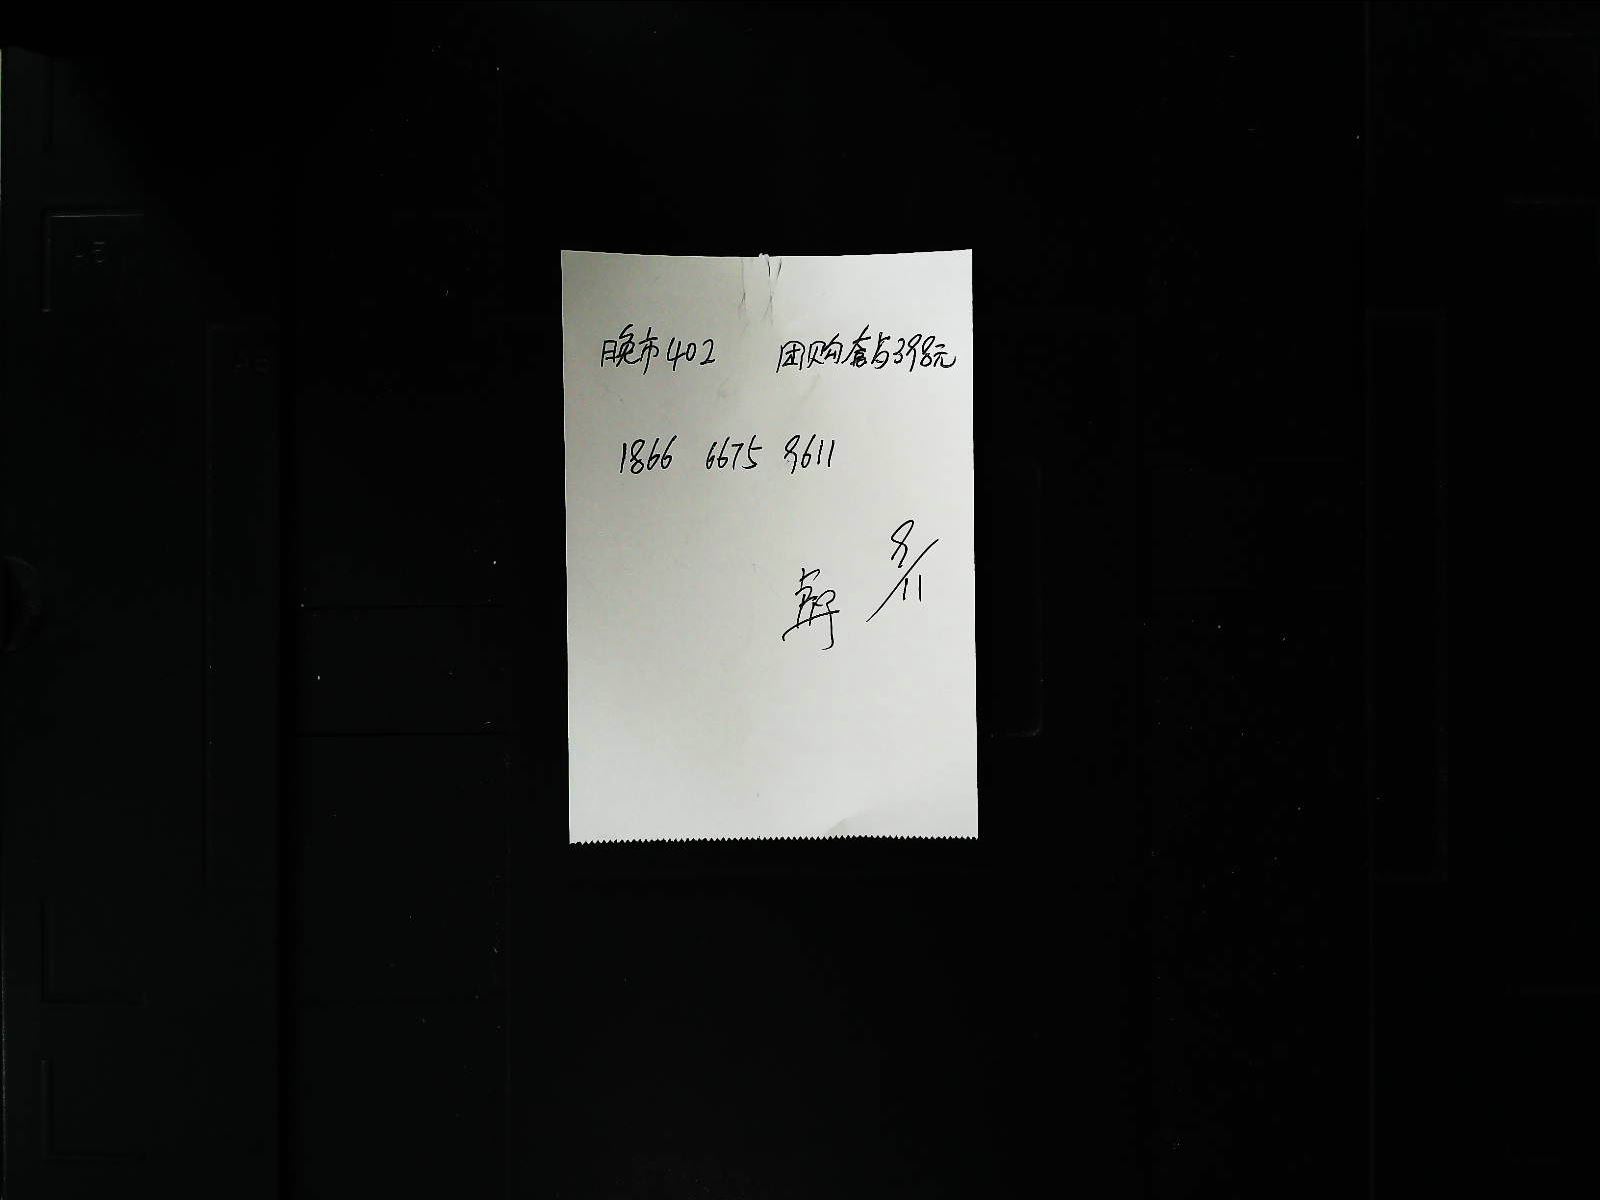 晚市402 团购套与398元
1866 6675 8611
8/11